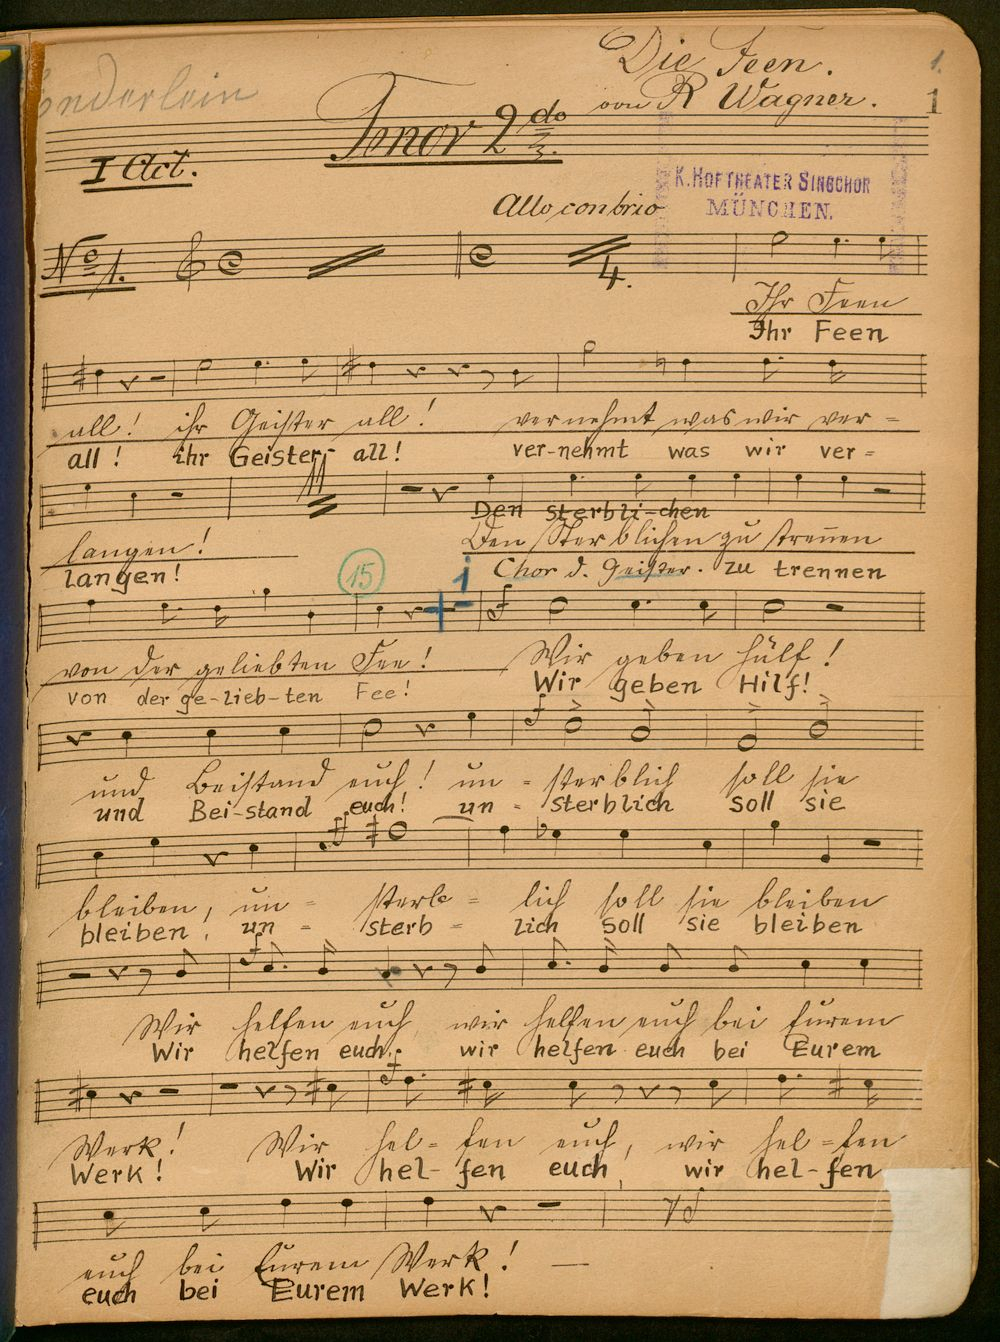 Die Feen.
1.
von R Wagner.
1
Tenor 2do
I Act.
K. HOFTHEATER SINGCHOR
MÜNCHEN.
Allo con brio
No 1.
4.
Ihr Feen
Ihr Feen
all! ihr Geister all! vernehmt was wir ver=
all! ihr Geister- all! ver-nehmt was wir ver=
11
Den sterbli-chen
langen! Den Sterblichen zu trennen
langen! 15 1 Chor d. Geister. zu trennen
von der geliebten Fee! Wir geben hülf!
von der ge-lieb-ten Fee! Wir geben Hilf!
f
und Beistand euch! un - sterblich soll sie
und Bei-stand euch! un - sterblich soll sie
ff
bleiben, un = sterb = lich soll sie bleiben
bleiben, un = sterb = lich soll sie bleiben
f
Wir helfen euch, wir helfen euch bei Eurem
Wir helfen euch, wir helfen euch bei Eurem
f
Werk! Wir hel= fen euch, wir hel=fen
Werk! Wir hel- fen euch, wir hel-fen
euch bei Eurem Werk! —
euch bei Eurem Werk!